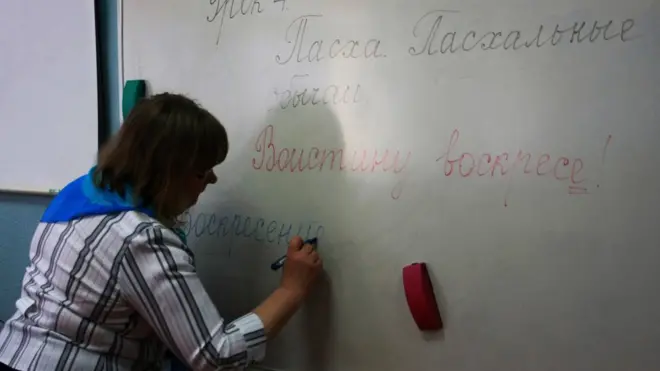 Урок 4.
Пасха. Пасхальные
обычаи
Воистину воскресе!
Воскресение